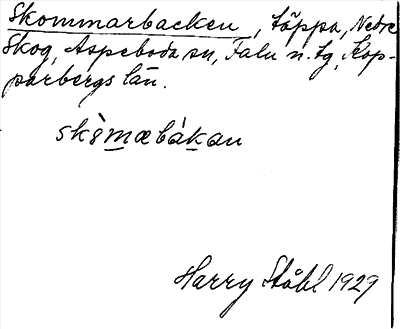 Skommarbacken, täppa, Nedre
Skog, Aspeboda sn, Falu n. tg, Kop-
parbergs län.
skòmæbákan
Harry Ståhl 1929